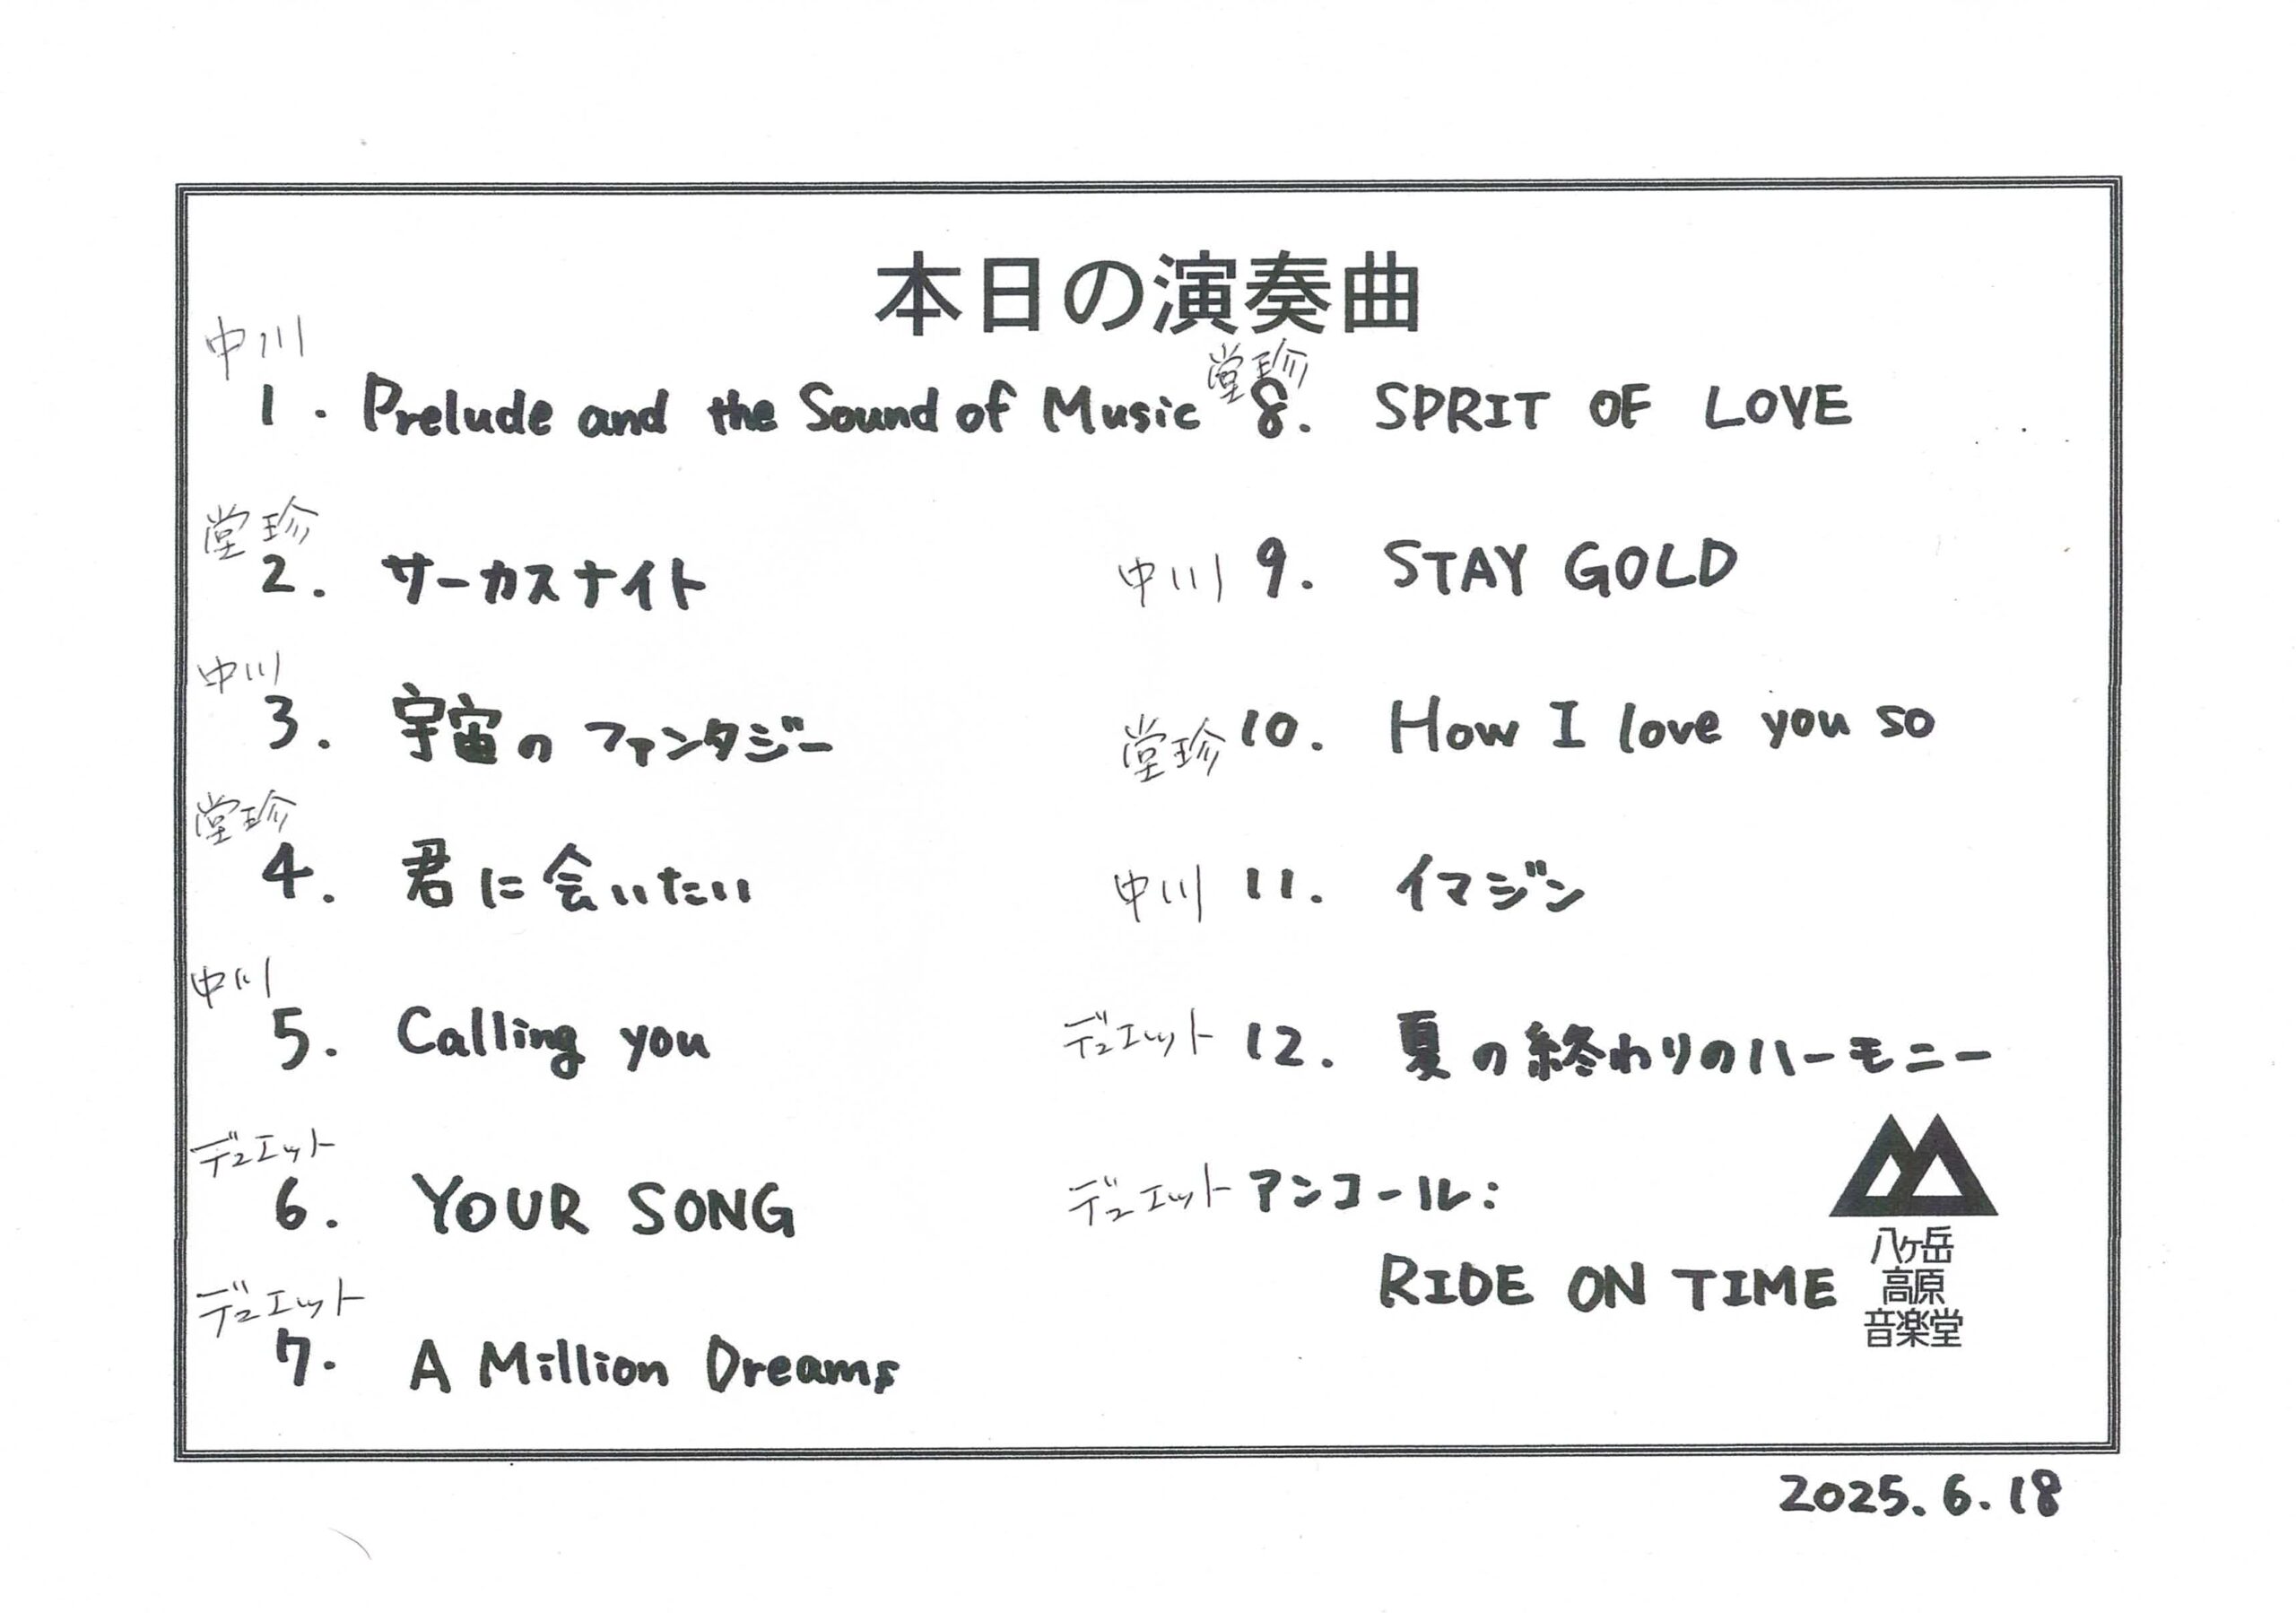 本日の演奏曲
中川
1. Prelude and the Sound of Music
堂珍
2. サーカスナイト
中川
3. 宇宙のファンタジー
堂珍
4. 君に会いたい
中川
5. Calling you
デュエット
6. YOUR SONG
デュエット
7. A Million Dreams
堂珍
8. SPRIT OF LOVE
中川 9. STAY GOLD
堂珍 10. How I love you so
中川 11. イマジン
デュエット 12. 夏の終わりのハーモニー
デュエット アンコール:
RIDE ON TIME
八ヶ岳
高原
音楽堂
2025.6.18